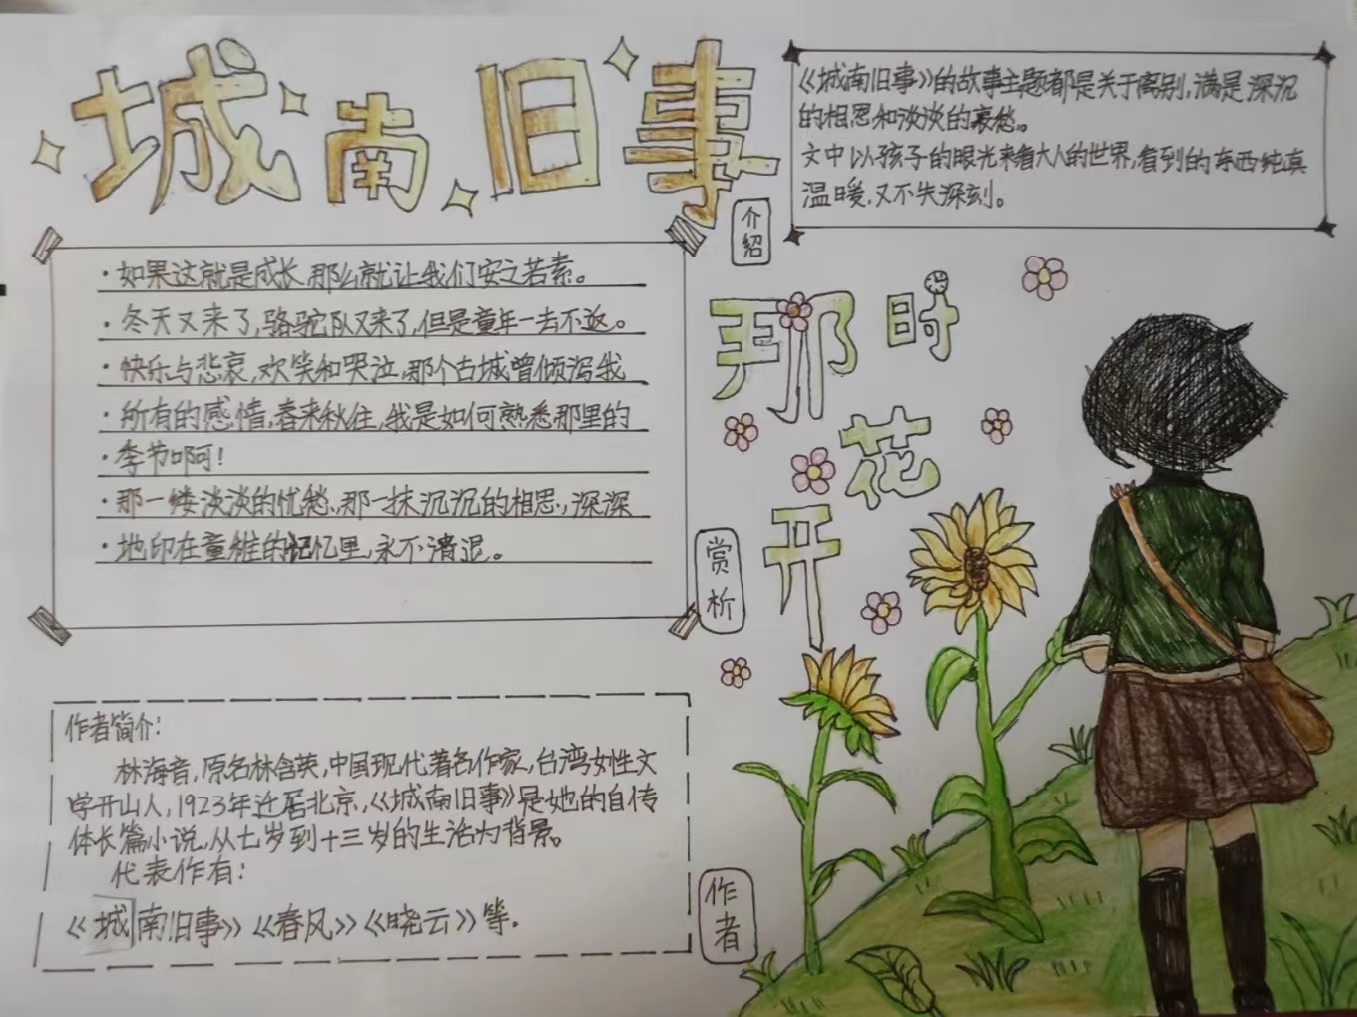 城南旧事
《城南旧事》的故事主题都是关于离别,满是深沉
的相思和淡淡的哀愁。
文中以孩子的眼光来看大人的世界,看到的东西纯真
温暖,又不失深刻。
介绍
·如果这就是成长,那么就让我们安之若素。
·冬天又来了,骆驼队又来了,但是童年一去不返。
·快乐与悲哀,欢笑和哭泣,那个古城曾倾泻我
所有的感情,春来秋往,我是如何熟悉那里的
季节啊!
·那一缕淡淡的忧愁,那一抹沉沉的相思,深深
地印在童稚的记忆里,永不消退。
赏析
那时
花
开
作者简介:
林海音,原名林含英,中国现代著名作家,台湾女性文
学开山人,1923年迁居北京,《城南旧事》是她的自传
体长篇小说,从七岁到十三岁的生活为背景。
代表作有:
《城南旧事》《春风》《晓云》等.
作者